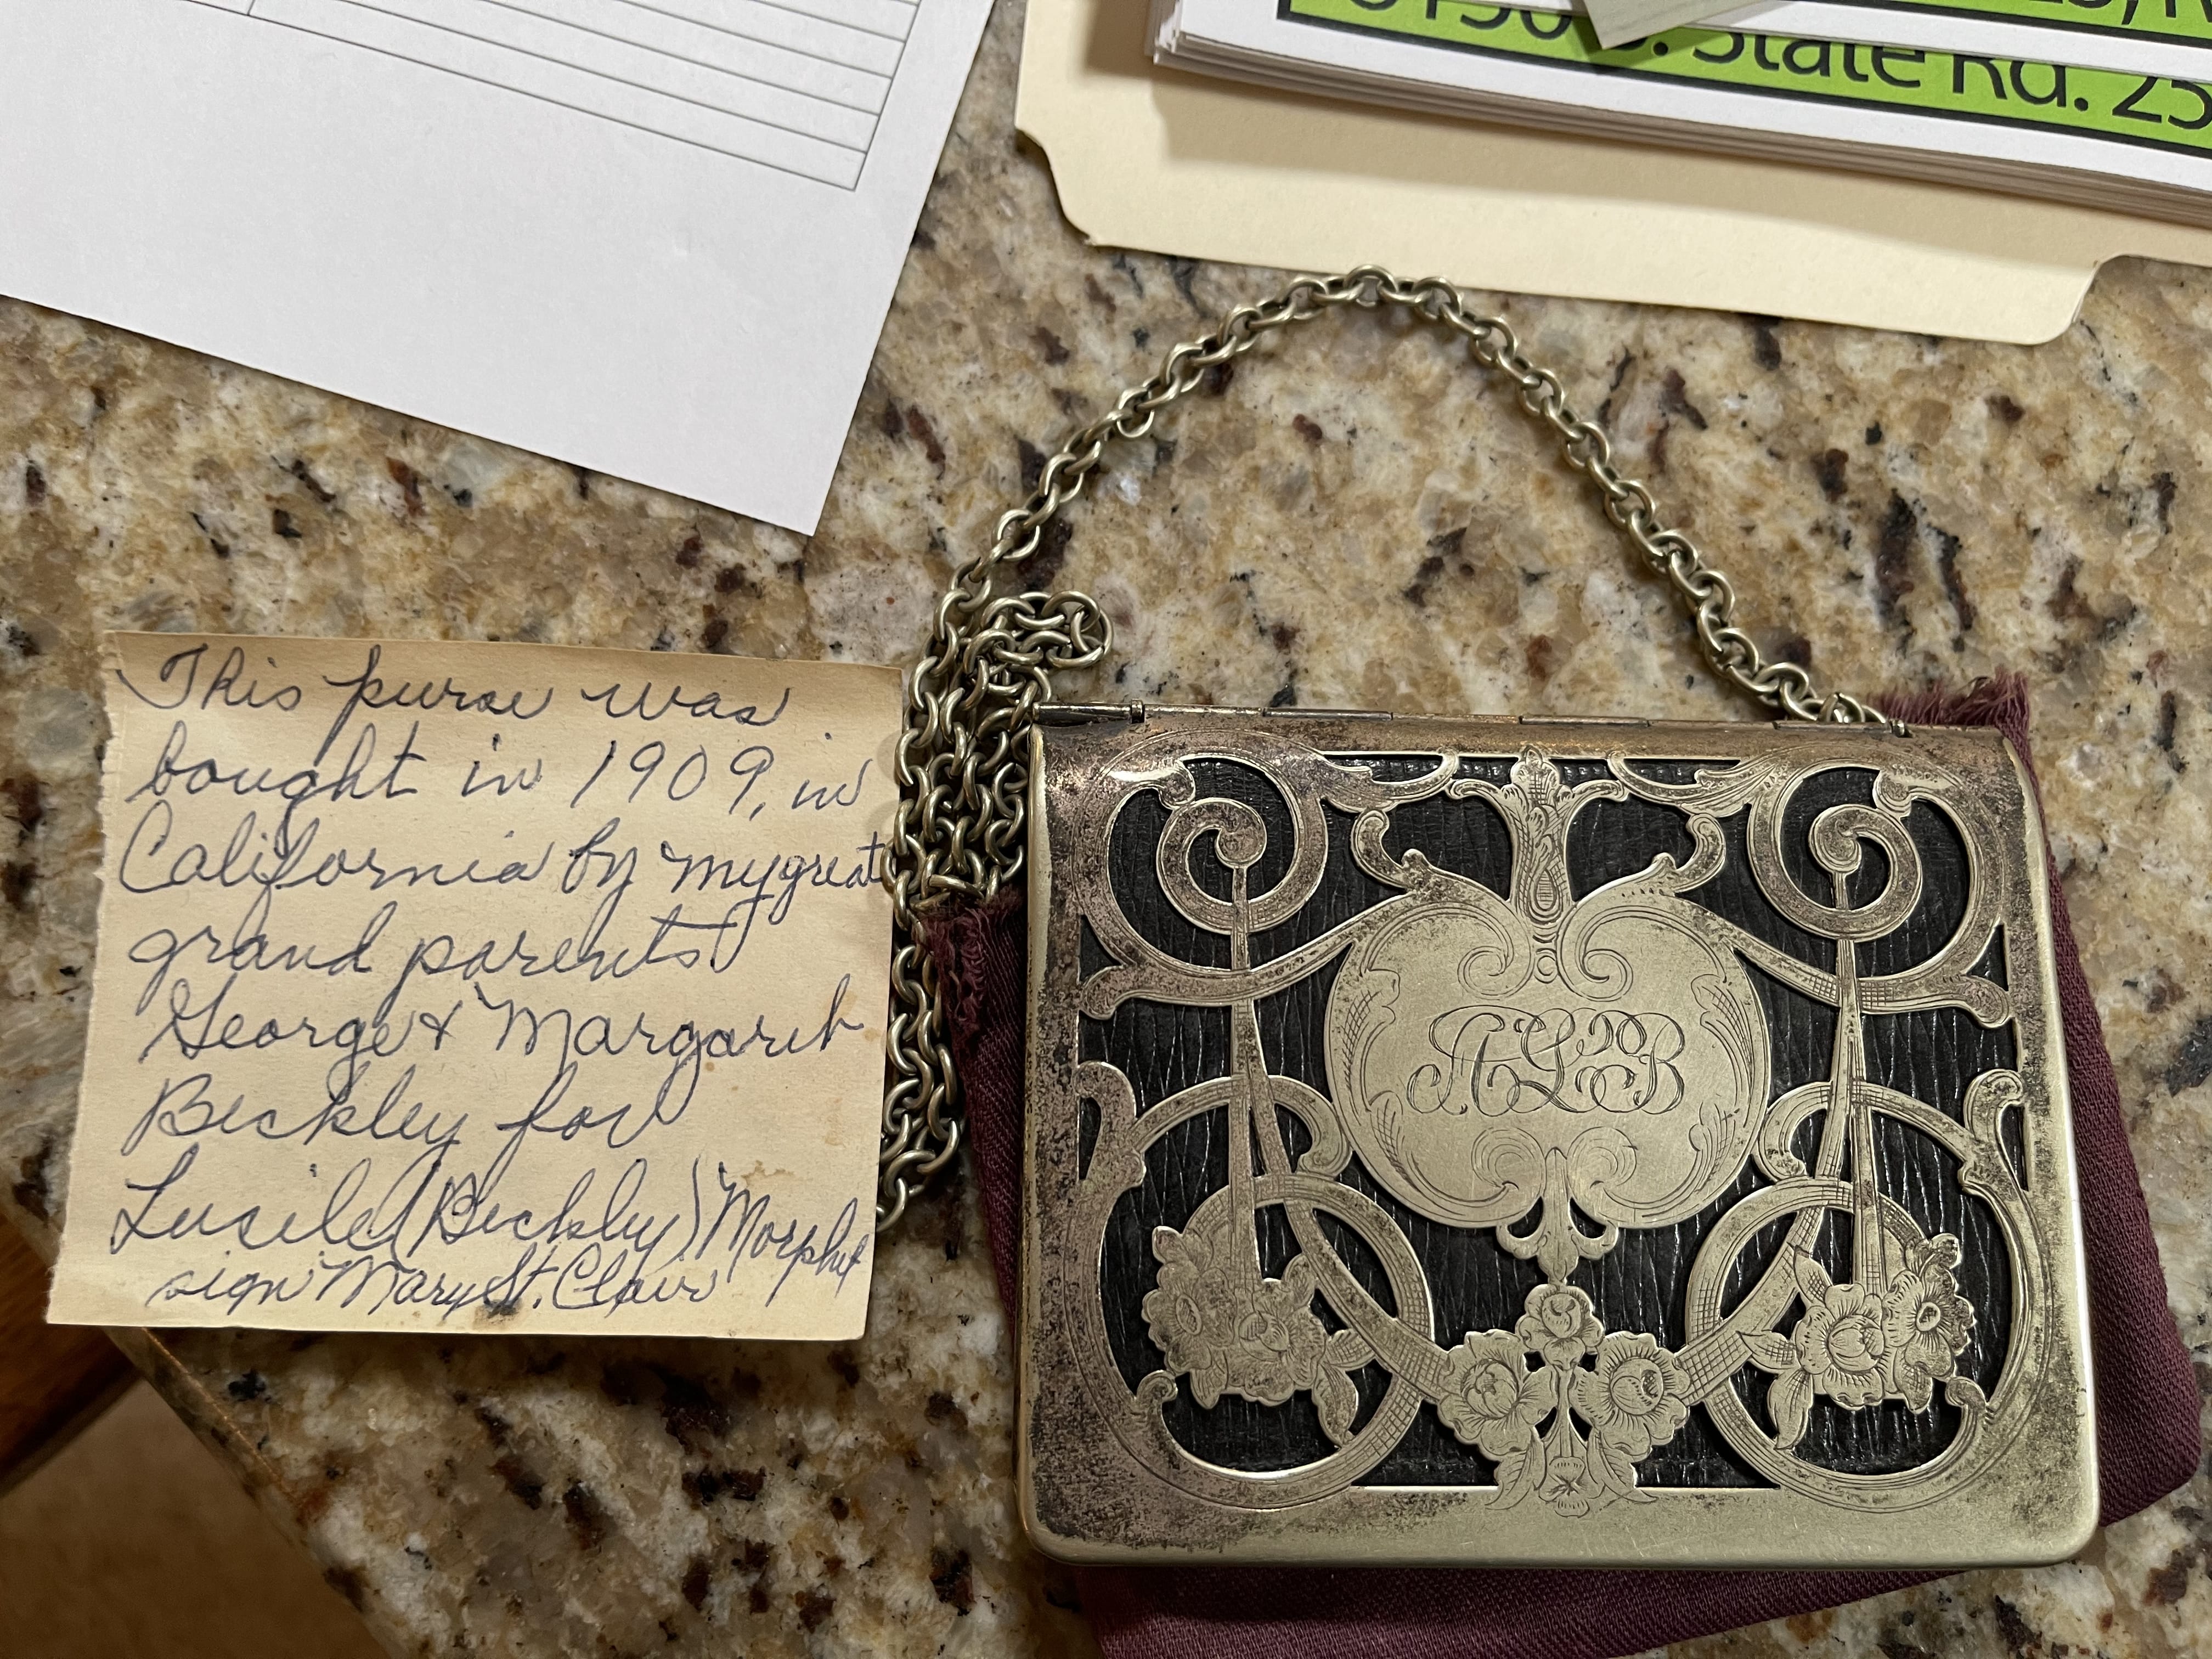 State Rd. 25
This purse was
bought in 1909, in
California by my great
grand parents
George & Margaret
Beckley for
Lucile (Beckley) Morphet
sign Mary St. Clair